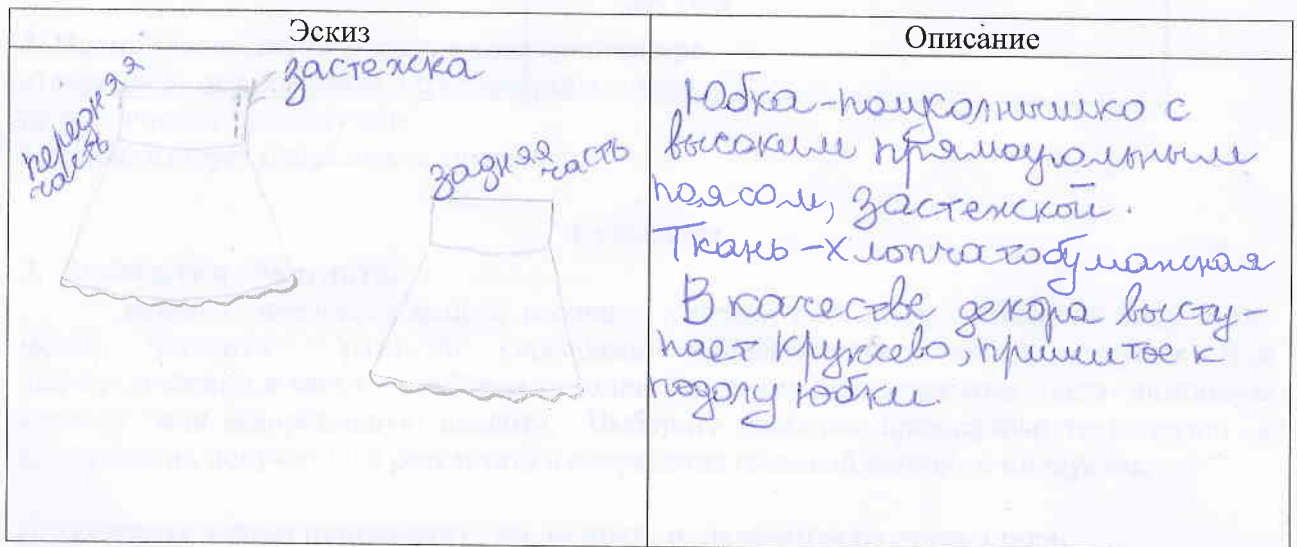 Эскиз
застежка
передняя
часть
задняя
часть
Описание
Юбка-полусолнышко с
высоким прямоугольным
поясом, застежкой.
Ткань-хлопчатобумажная
В качестве декора высту-
пает кружево, пришитое к
подолу юбки